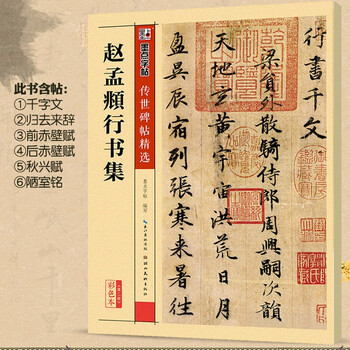 此书含帖:
①千字文
②归去来辞
③前赤壁赋
④后赤壁赋
⑤秋兴赋
⑥陋室铭
墨点字帖
传世碑帖精选
赵孟頫行书集
墨点字帖 编写
彩色本
行書千文
梁員外散騎侍郎周興嗣次韻
天地玄黄宇宙洪荒日月
盈昃辰宿列張寒来暑往